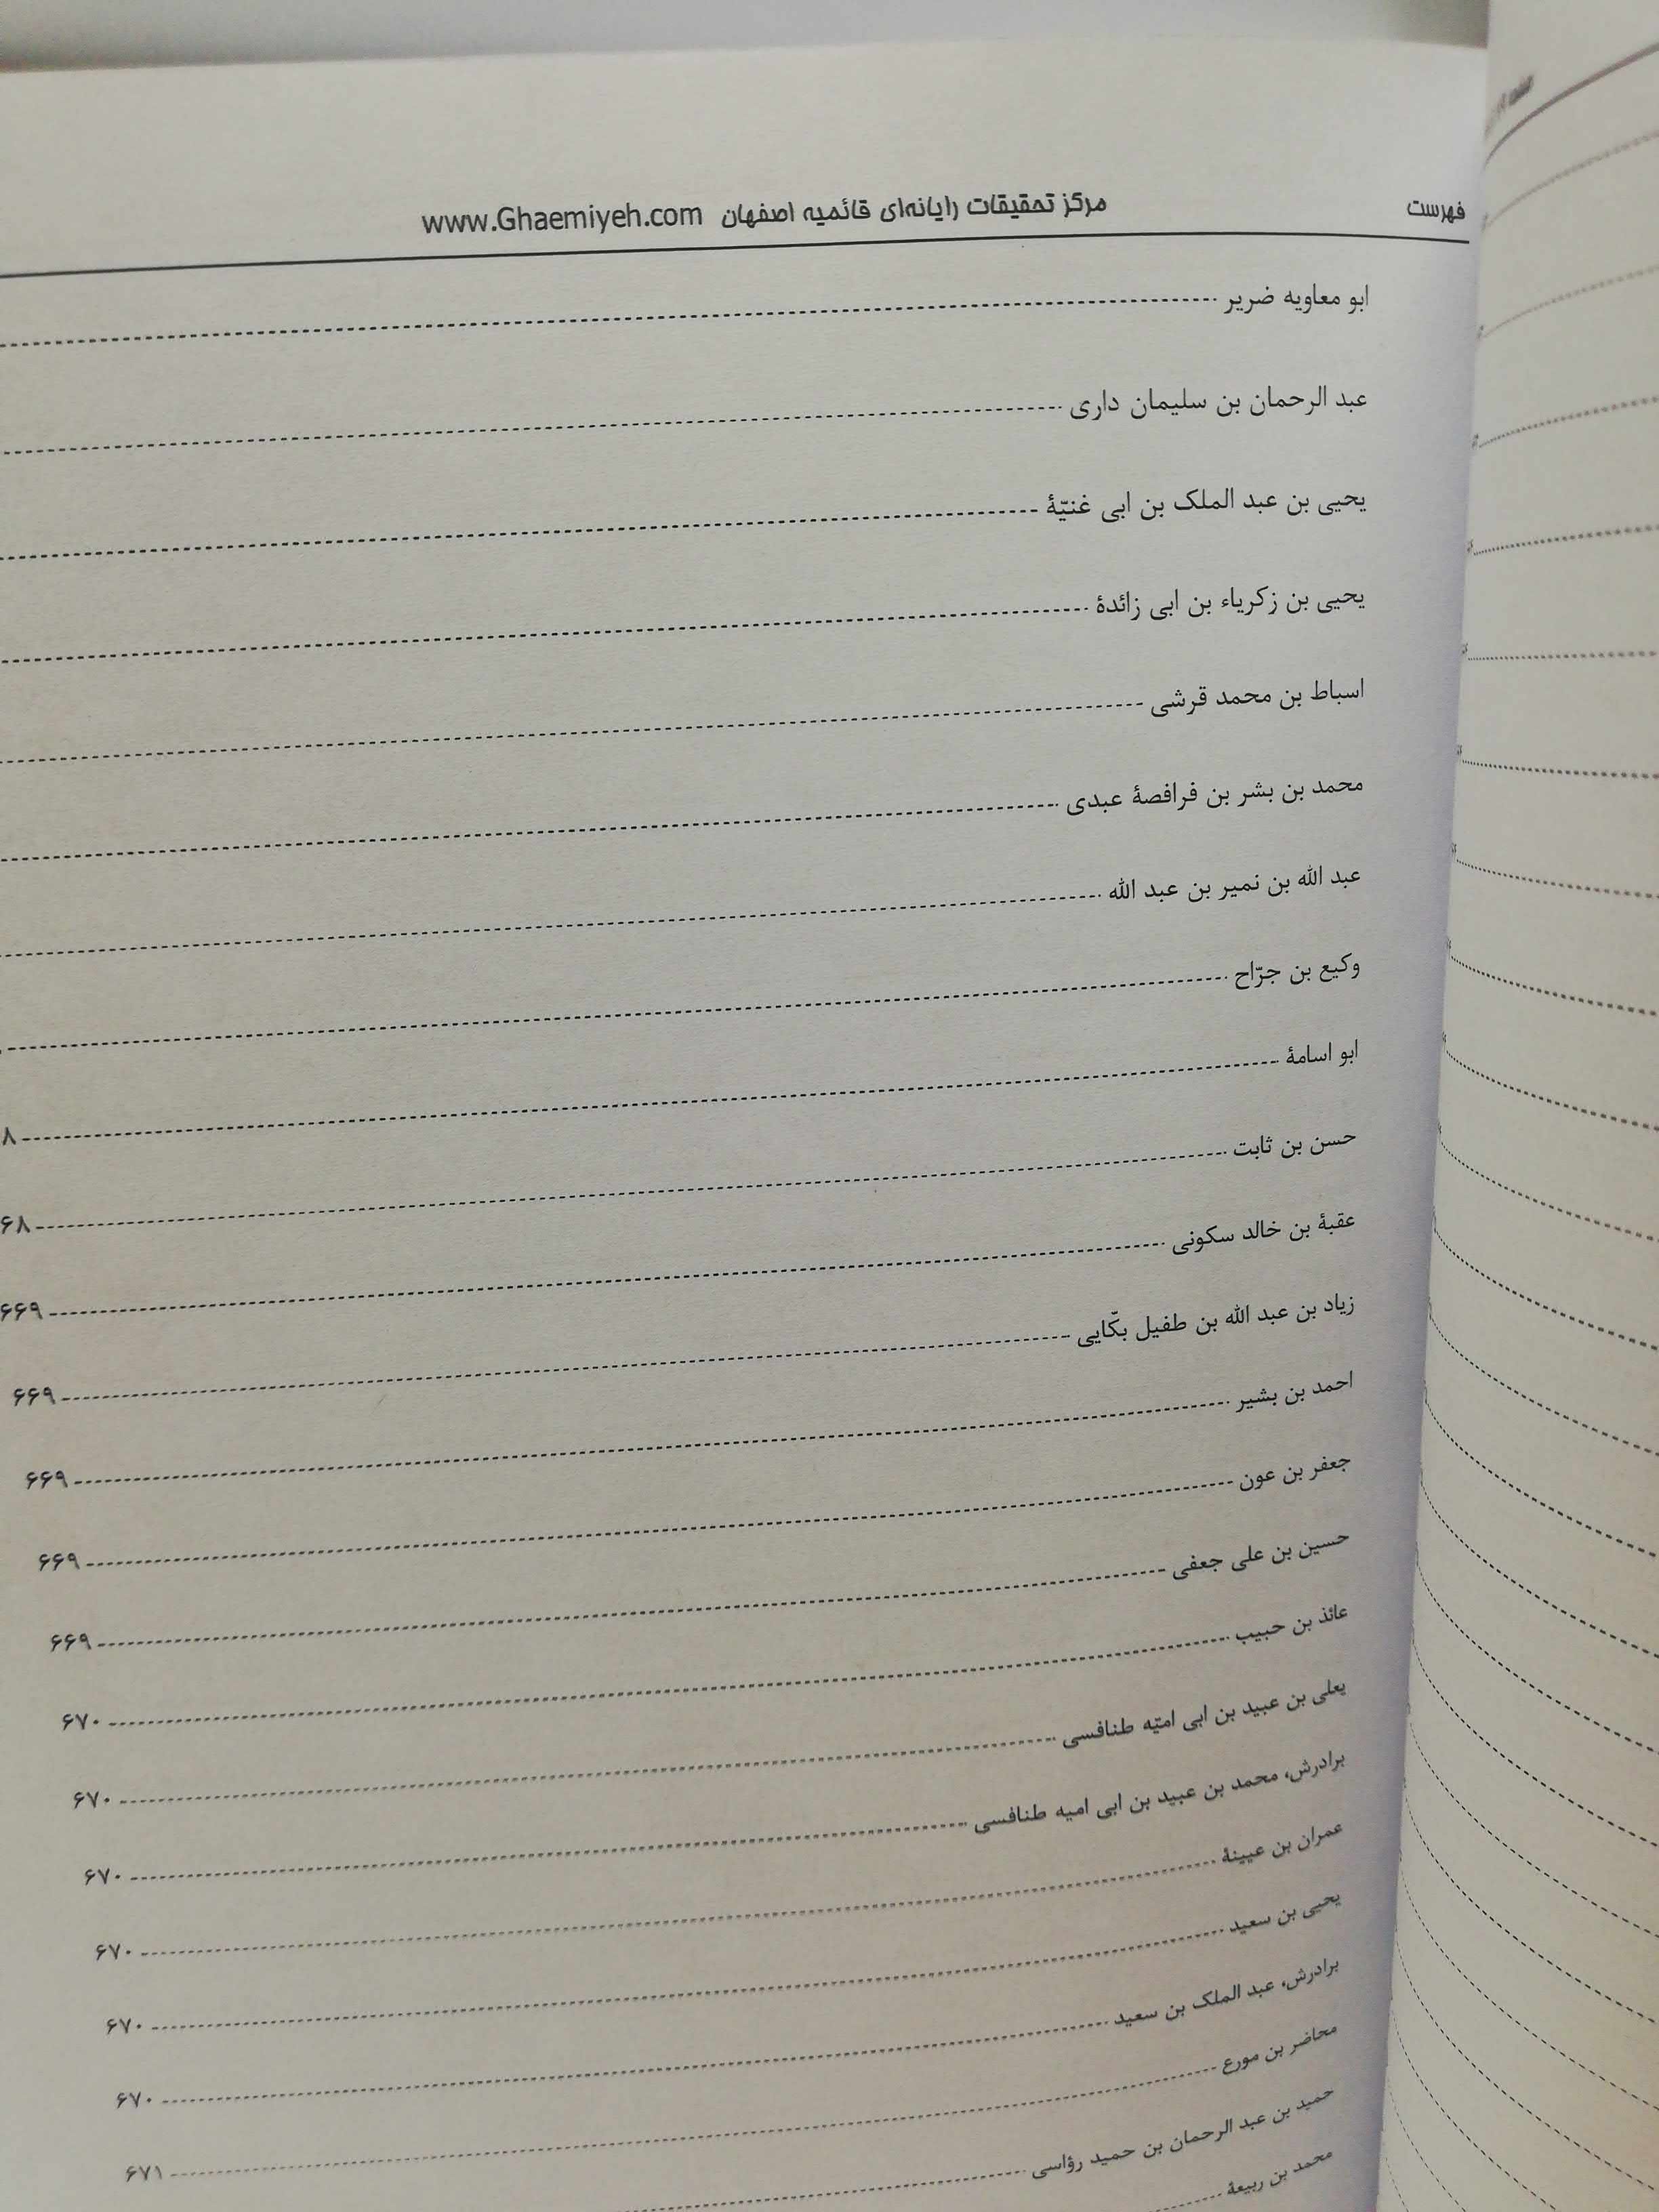 فهرست مرکز تحقیقات رایانه‌ای قائمیه اصفهان www.Ghaemiyeh.com
ابو معاویه ضریر
عبد الرحمان بن سلیمان داری
یحیی بن عبد الملک بن ابی غنیّۀ
یحیی بن زکریاء بن ابی زائدۀ
اسباط بن محمد قرشی
محمد بن بشر بن فرافصۀ عبدی
عبد الله بن نمیر بن عبد الله
وکیع بن جرّاح
ابو اسامۀ ۸
حسن بن ثابت ۶۸
عقبۀ بن خالد سکونی ۶۶۹
زیاد بن عبد الله بن طفیل بکّایی ۶۶۹
احمد بن بشیر ۶۶۹
جعفر بن عون ۶۶۹
حسین بن علی جعفی ۶۶۹
عائذ بن حبیب ۶۷۰
یعلی بن عبید بن ابی امیّه طنافسی ۶۷۰
برادرش، محمد بن عبید بن ابی امیه طنافسی ۶۷۰
عمران بن عیینۀ ۶۷۰
یحیی بن سعید ۶۷۰
برادرش، عبد الملک بن سعید ۶۷۰
محاضر بن مورع ۶۷۱
حمید بن عبد الرحمان بن حمید رؤاسی
محمد بن ربیعۀ